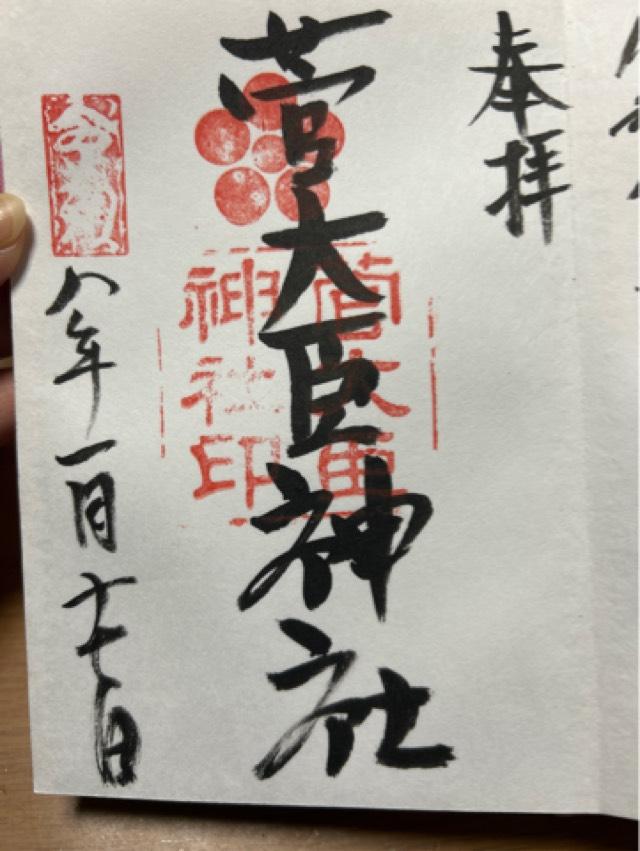 奉拝
菅大臣神社
菅大臣
神社印
令和
八年一月十七日